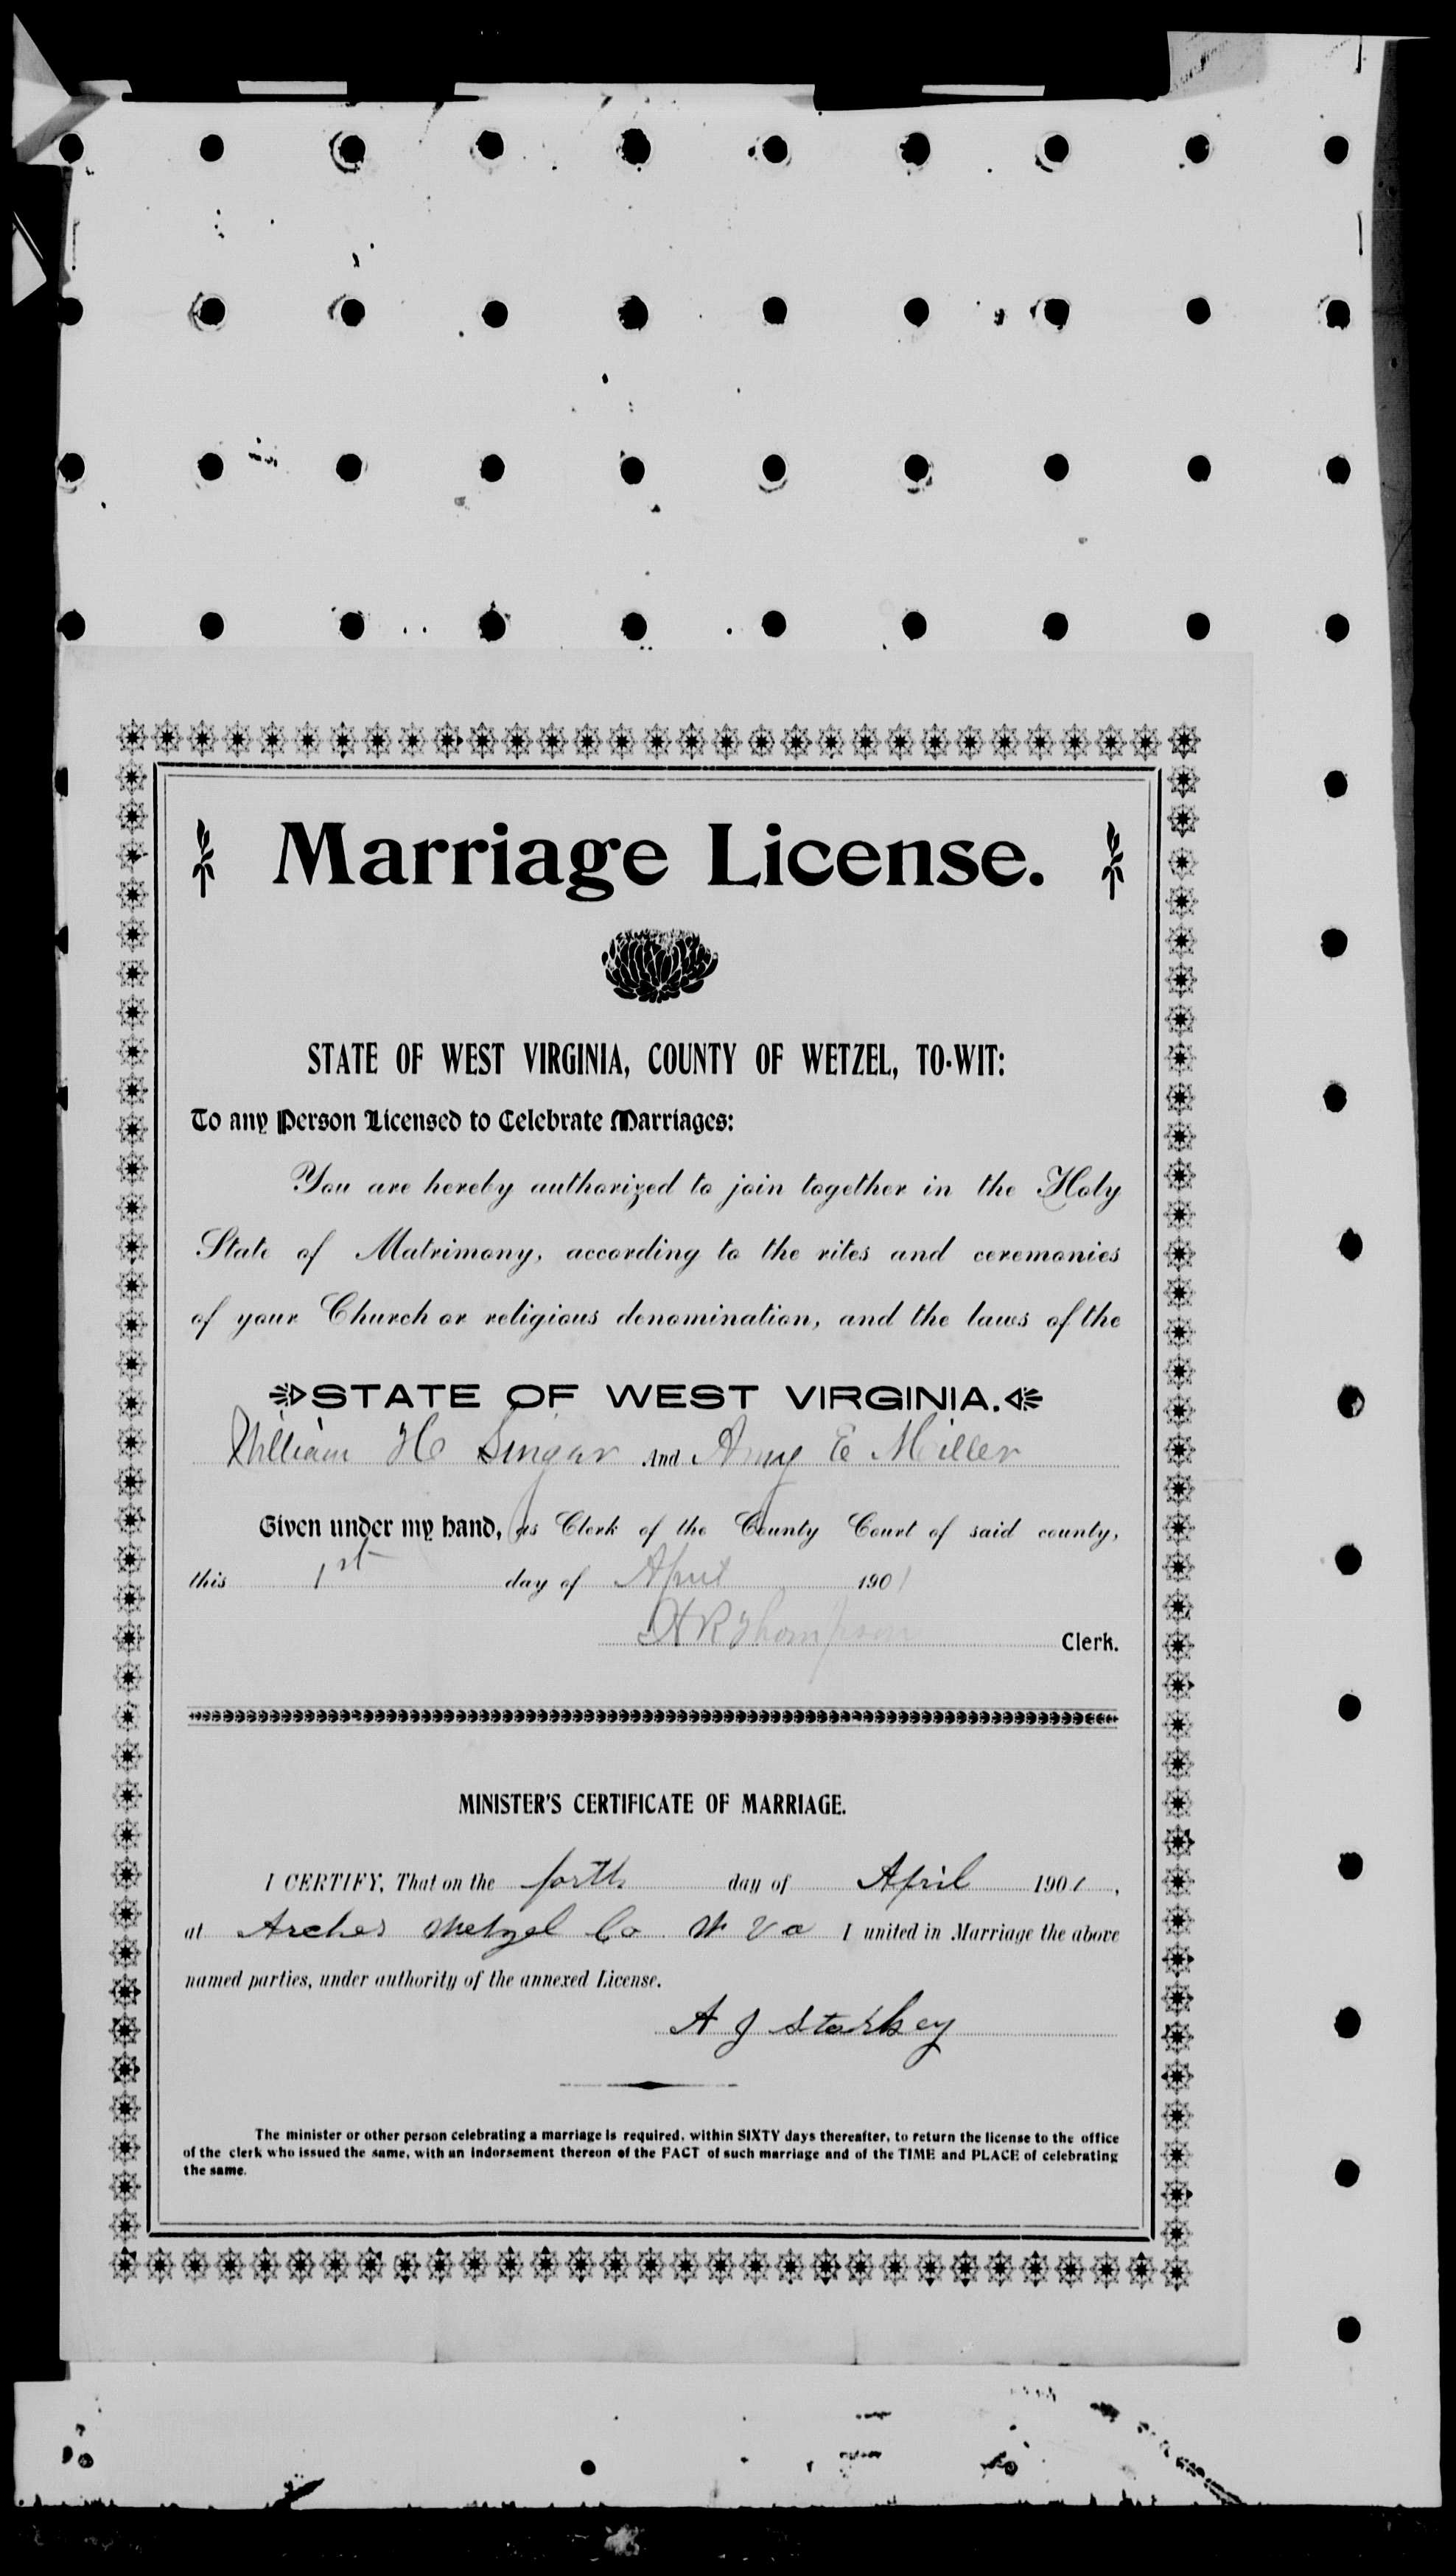 Marriage License.
STATE OF WEST VIRGINIA, COUNTY OF WETZEL, TO-WIT:
To any Person Licensed to Celebrate Marriages:
You are hereby authorized to join together in the Holy
State of Matrimony, according to the rites and ceremonies
of your Church or religious denomination, and the laws of the
STATE OF WEST VIRGINIA.
William H Singar And Amy E Miller
Given under my hand, as Clerk of the County Court of said county,
this 1st day of April 1901
H R Thompson Clerk.
MINISTER'S CERTIFICATE OF MARRIAGE.
I CERTIFY, That on the forth day of April 1901,
at Archer Wetzel Co W Va I united in Marriage the above
named parties, under authority of the annexed License.
A J Starkey
The minister or other person celebrating a marriage is required, within SIXTY days thereafter, to return the license to the office
of the clerk who issued the same, with an indorsement thereon of the FACT of such marriage and of the TIME and PLACE of celebrating
the same.